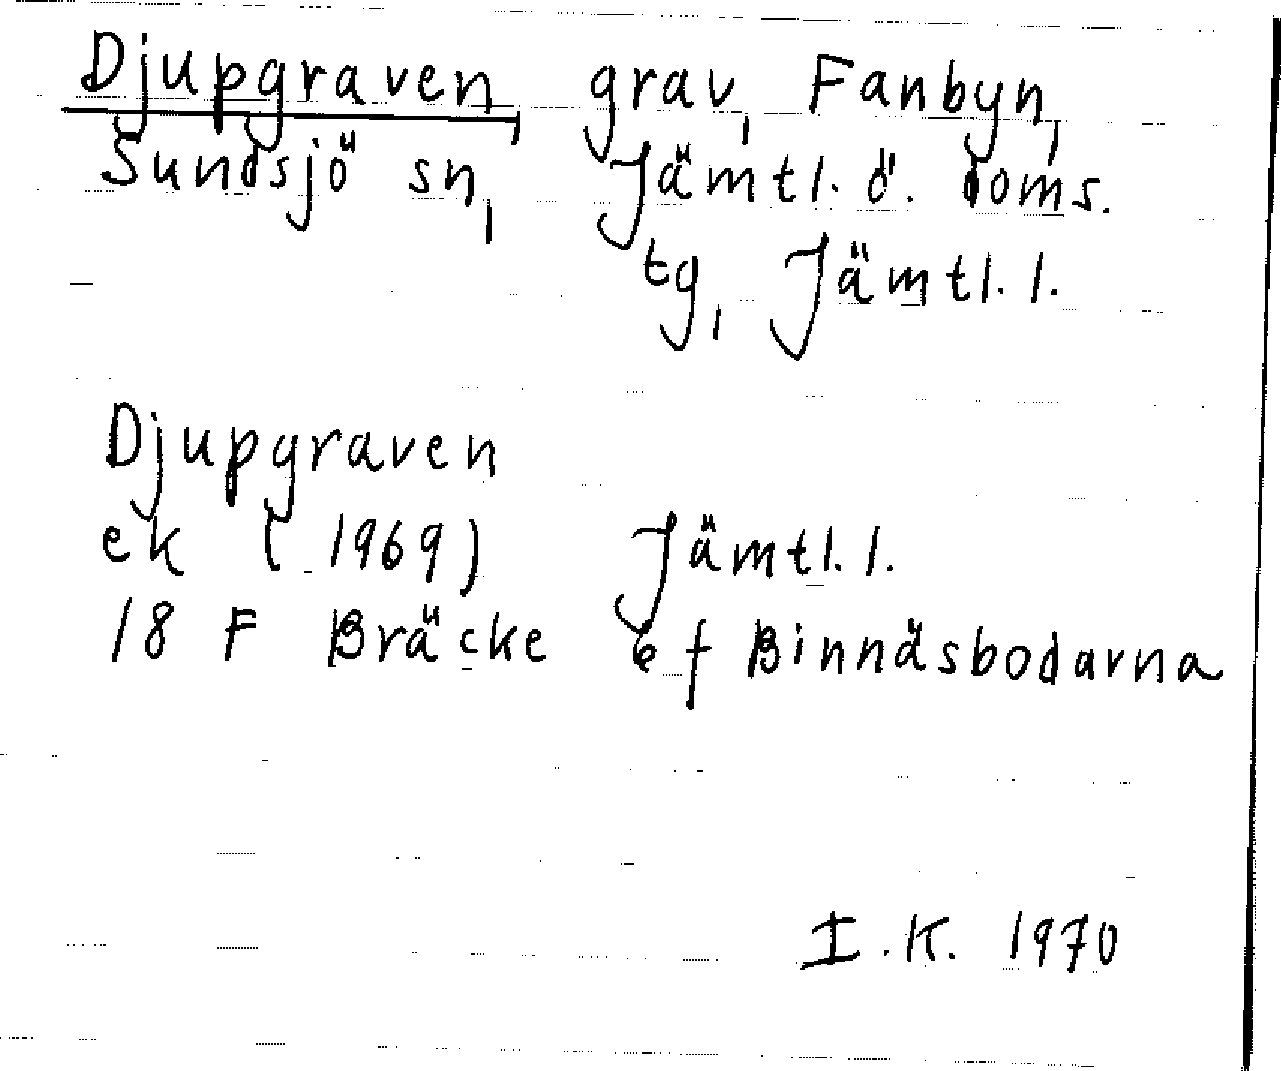 Djupgraven, grav, Fanbyn,
Sundsjö sn, Jämtl. ö. doms.
tg, Jämtl. l.
Djupgraven
ek (1969) Jämtl. l.
18 F Bräcke 6 f Binnäsbodarna
I.K. 1970